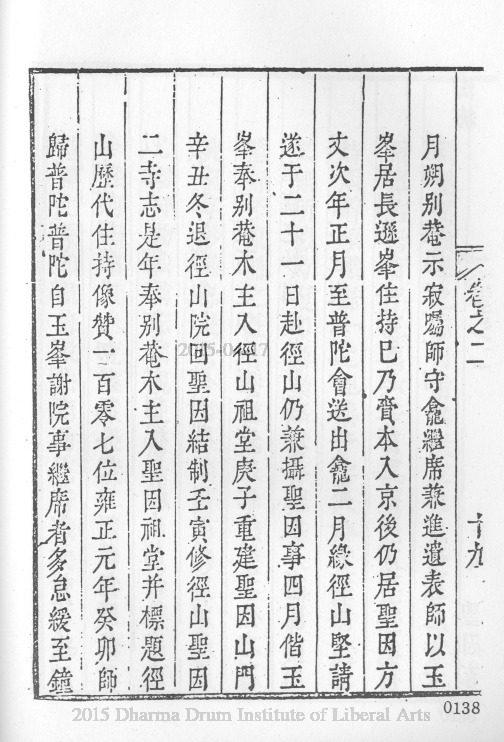 卷之二 十九
月朔别菴示寂囑師守龕繼席兼進遺表師以玉
峯居長遜峯住持巳乃賫本入京後仍居聖因方
丈次年正月至普陀會送出龕二月緣徑山堅請
遂于二十一日赴徑山仍兼攝聖因事四月偕玉
峯奉别菴木主入徑山祖堂庚子重建聖因山門
辛丑冬退徑山院回聖因結制壬寅修徑山聖因
二寺志是年奉别菴木主入聖因祖堂并標題徑
山歷代住持像贊一百零七位雍正元年癸卯師
歸普陀普陀自玉峯謝院事繼席者多怠緩至鐘
0138
2015 Dharma Drum Institute of Liberal Arts